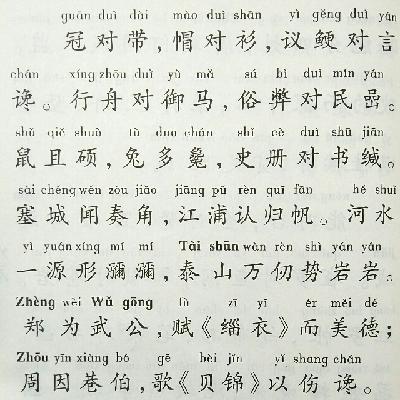 guān duì dài mào duì shān yì gěng duì yán
冠对带，帽对衫，议鲠对言
chán xíng zhōu duì yù mǎ sú bì duì mín yán
谗。行舟对御马，俗弊对民嵒。
shǔ qiě shuò tù duō chán shǐ cè duì shū jiān
鼠且硕，兔多毚，史册对书缄。
sài chéng wén zòu jiǎo jiāng pǔ rèn guī fān hé shuǐ
塞城闻奏角，江浦认归帆。河水
yì yuán xíng mí mí Tài shān wàn rèn shì yán yán
一源形瀰瀰，泰山万仞势岩岩。
Zhèng wèi Wǔ gōng fù zī yī ér měi dé
郑为武公，赋《缁衣》而美德；
Zhōu yīn xiàng bó gē bèi jǐn yǐ shāng chán
周因巷伯，歌《贝锦》以伤谗。